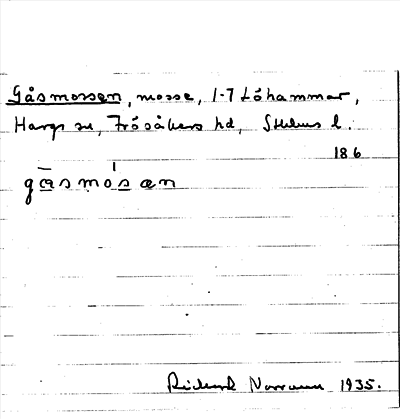 Gåsmossen, mosse, 1-7 Löhammar,
Hargs sn, Frösåkers hd, Sthlms l.
186
gāsmósæn
Rickard Norrman 1935.